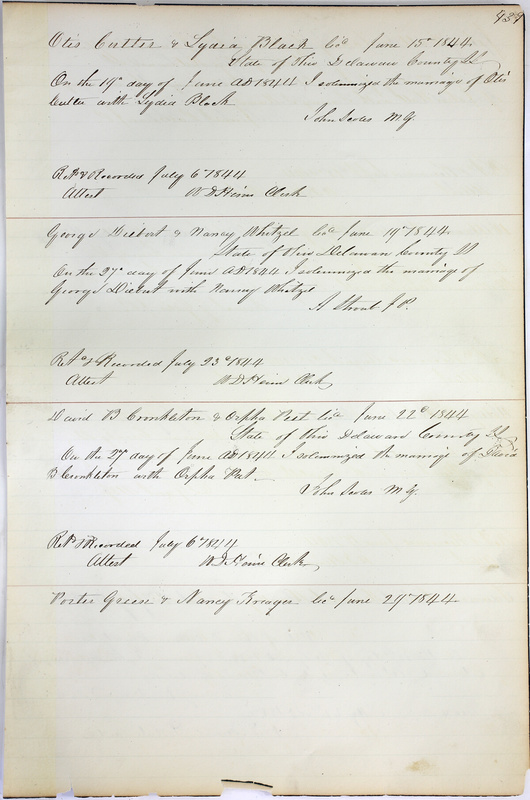 439
Otis Cutter & Lydia Black Licd June 15th 1844
State of Ohio Delaware County SS
On the 19th day of June AD 1844 I solemnized the marriage of Otis
Cutter with Lydia Black
John M.G.
Retd & Recorded July 6th 1844
Attest W D Heim Clerk
George Diebert & Nancy Whitzel Licd June 19th 1844
State of Ohio Delaware County SS
On the 27th day of June AD 1844 I solemnized the marriage of
George Diebert with Nancy Whitzel
A Shoub J.P.
Retd & Recorded July 23d 1844
Attest W D Heim Clerk
David B Conkleton & Orpha Peet Licd June 22d 1844
State of Ohio Delaware County SS
On the 27 day of June AD 1844 I solemnized the marriage of David
B Conkleton with Orpha Peet
John M.G.
Retd & Recorded July 6th 1844
Attest W D Heim Clerk
Porter Green & Nancy Kreager Licd June 29th 1844